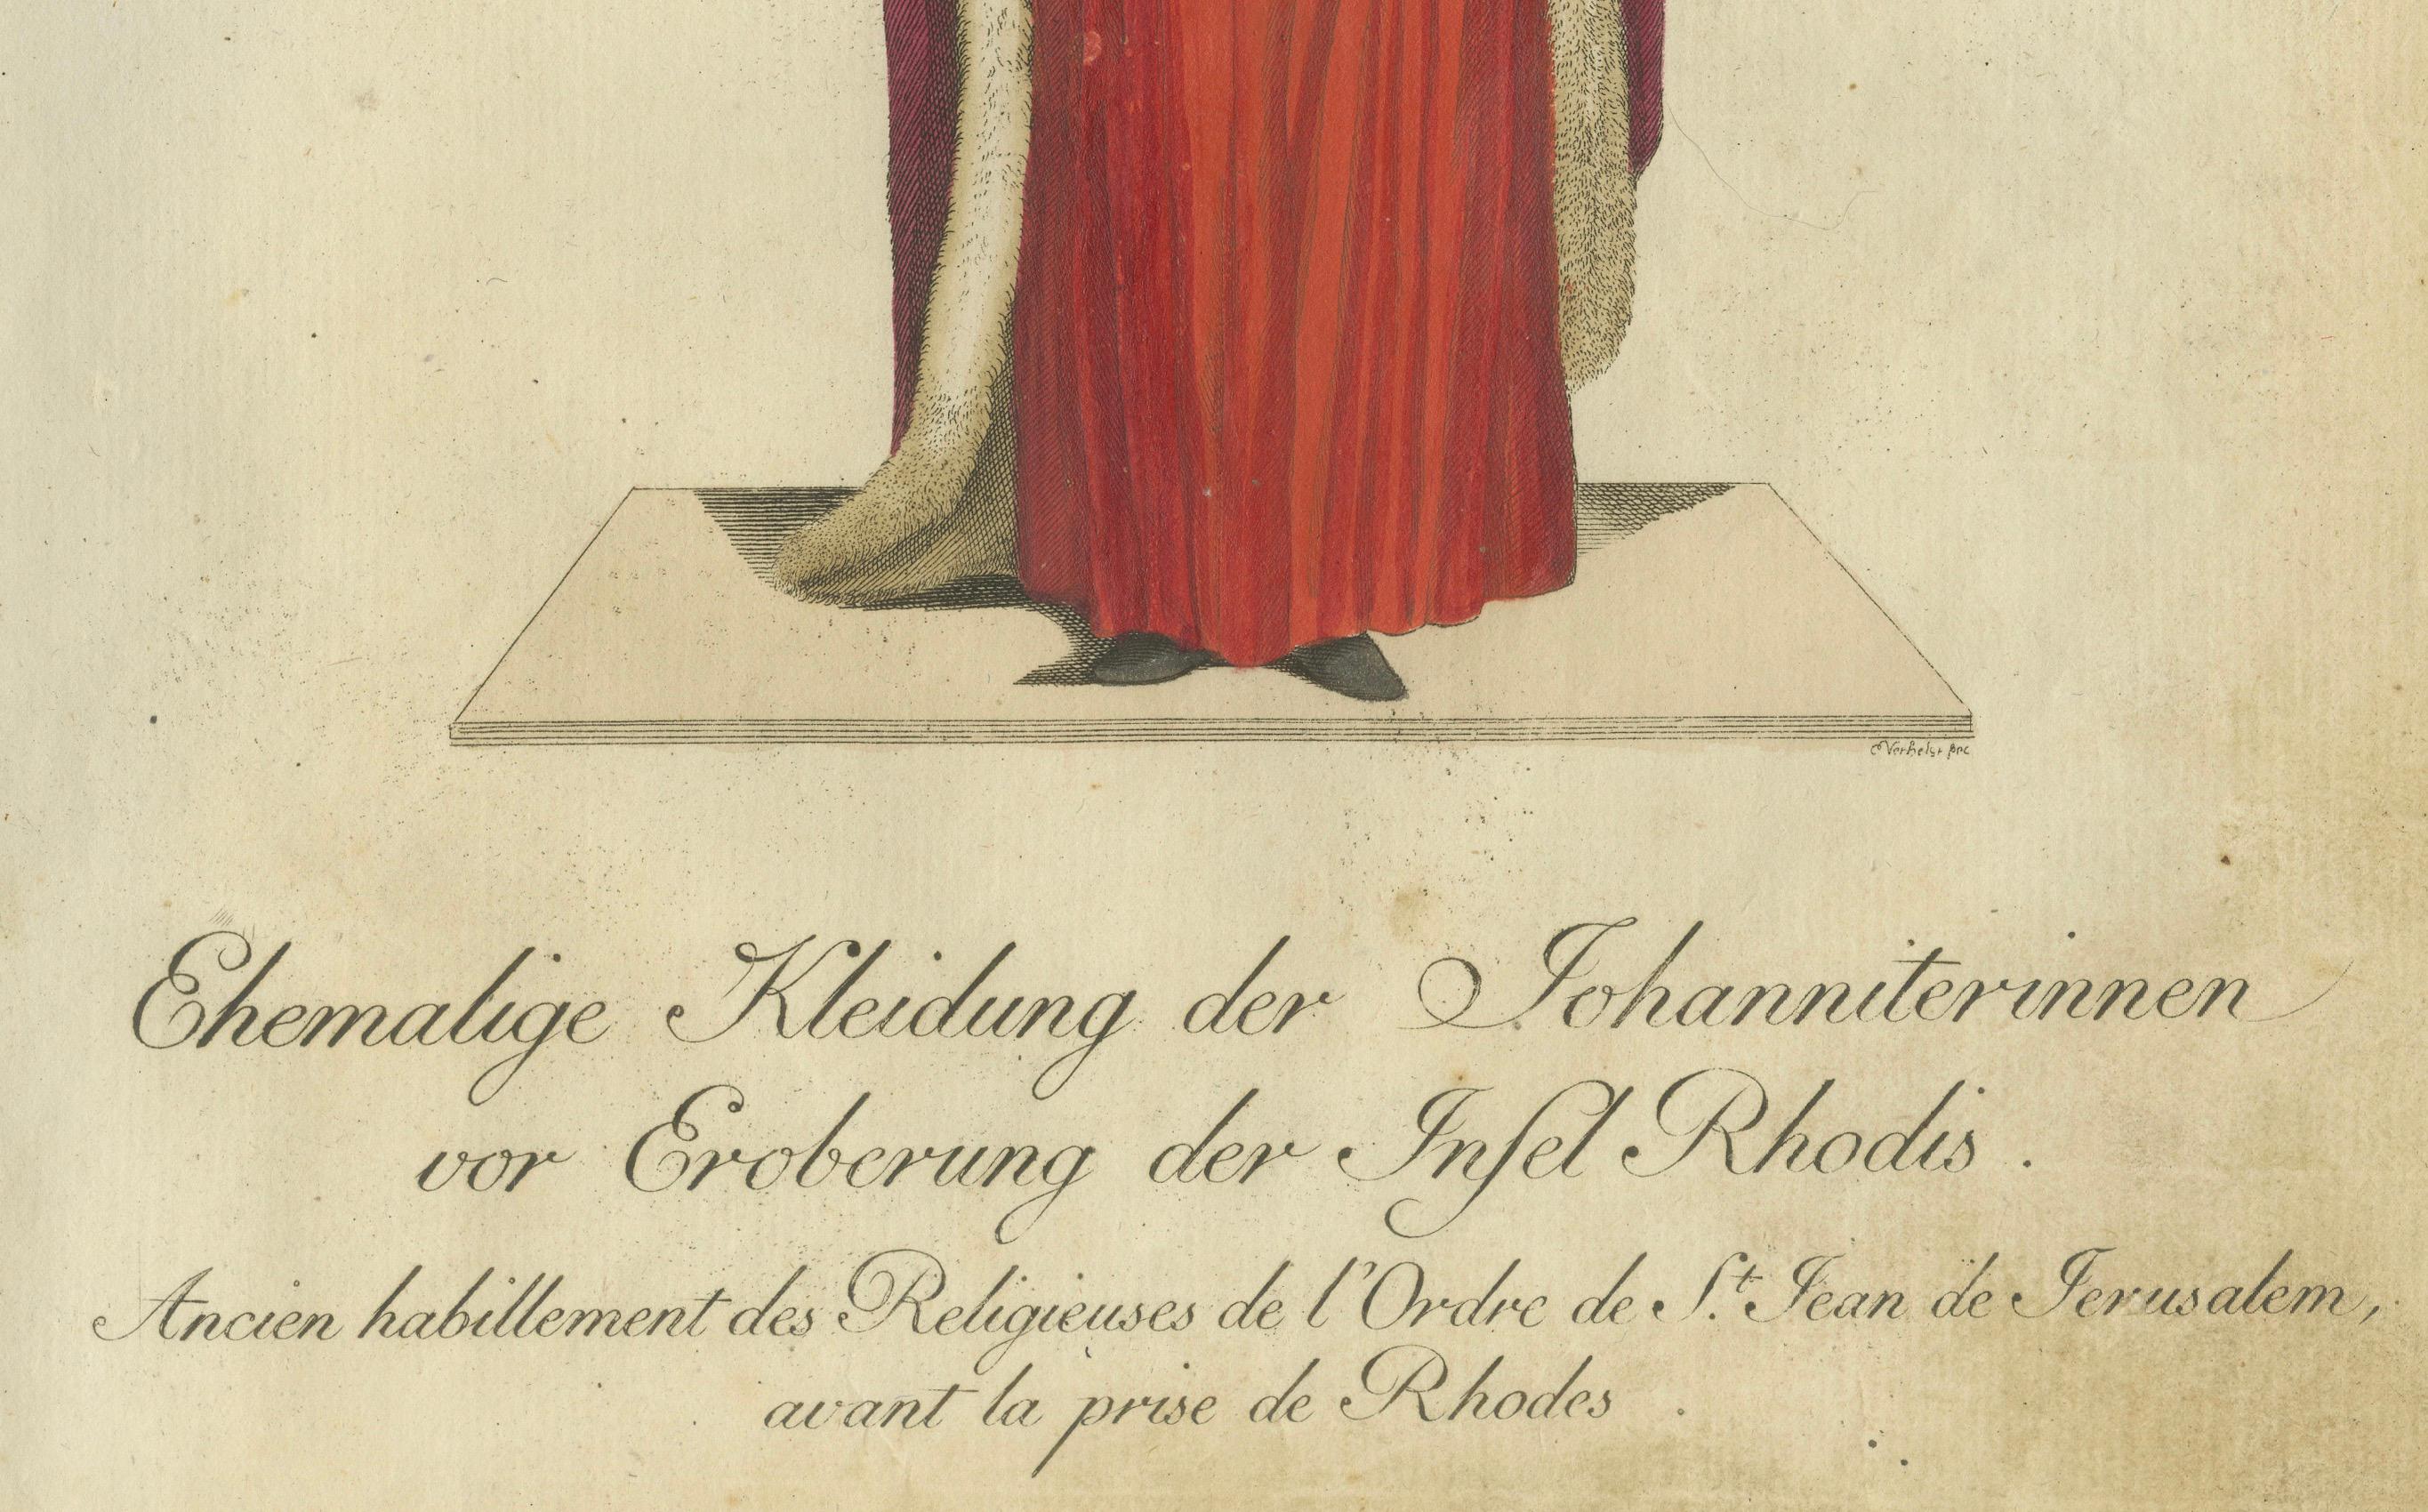 E Verhelst fec
Ehemalige Kleidung der Johanniterinnen
vor Eroberung der Inſel Rhodis .
Ancien habillement des Religieuses de l'Ordre de S.t Jean de Jerusalem,
avant la prise de Rhodes .